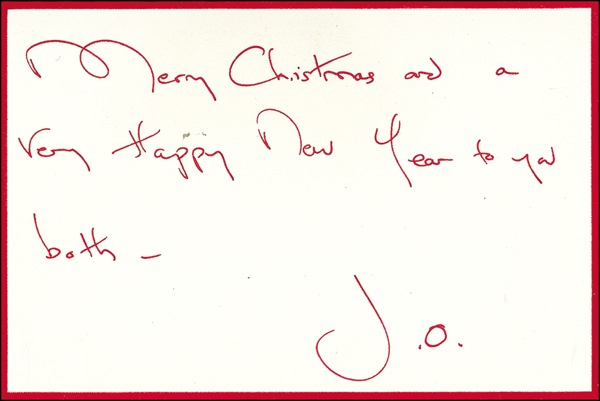 Merry Christmas and a
Very Happy New Year to you
both –
J.O.